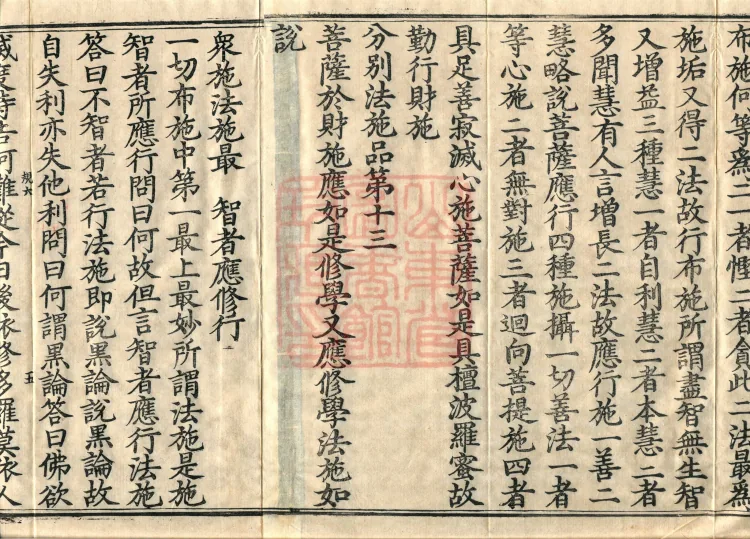 布施何等為二一者慳二者貪此二法最為
施垢又得二法故行布施所謂盡智無生智
又增益三種慧一者自利慧二者本慧三者
多聞慧有人言增長二法故應行施一善二
慧略說菩薩應行四種施攝一切善法一者
等心施二者無對施三者迴向菩提施四者
具足善寂滅心施菩薩如是具檀波羅蜜故
勤行財施
分別法施品第十三
菩薩於財施應如是修學又應修學法施如
說
衆施法施最 智者應修行
一切布施中第一最上最妙所謂法施是施
智者所應行問曰何故但言智者應行法施
答曰不智者若行法施即說黑論說黑論故
自失利亦失他利問曰何謂黑論答曰佛欲
規六
五
滅度時告阿難從今日後依修多羅莫依人